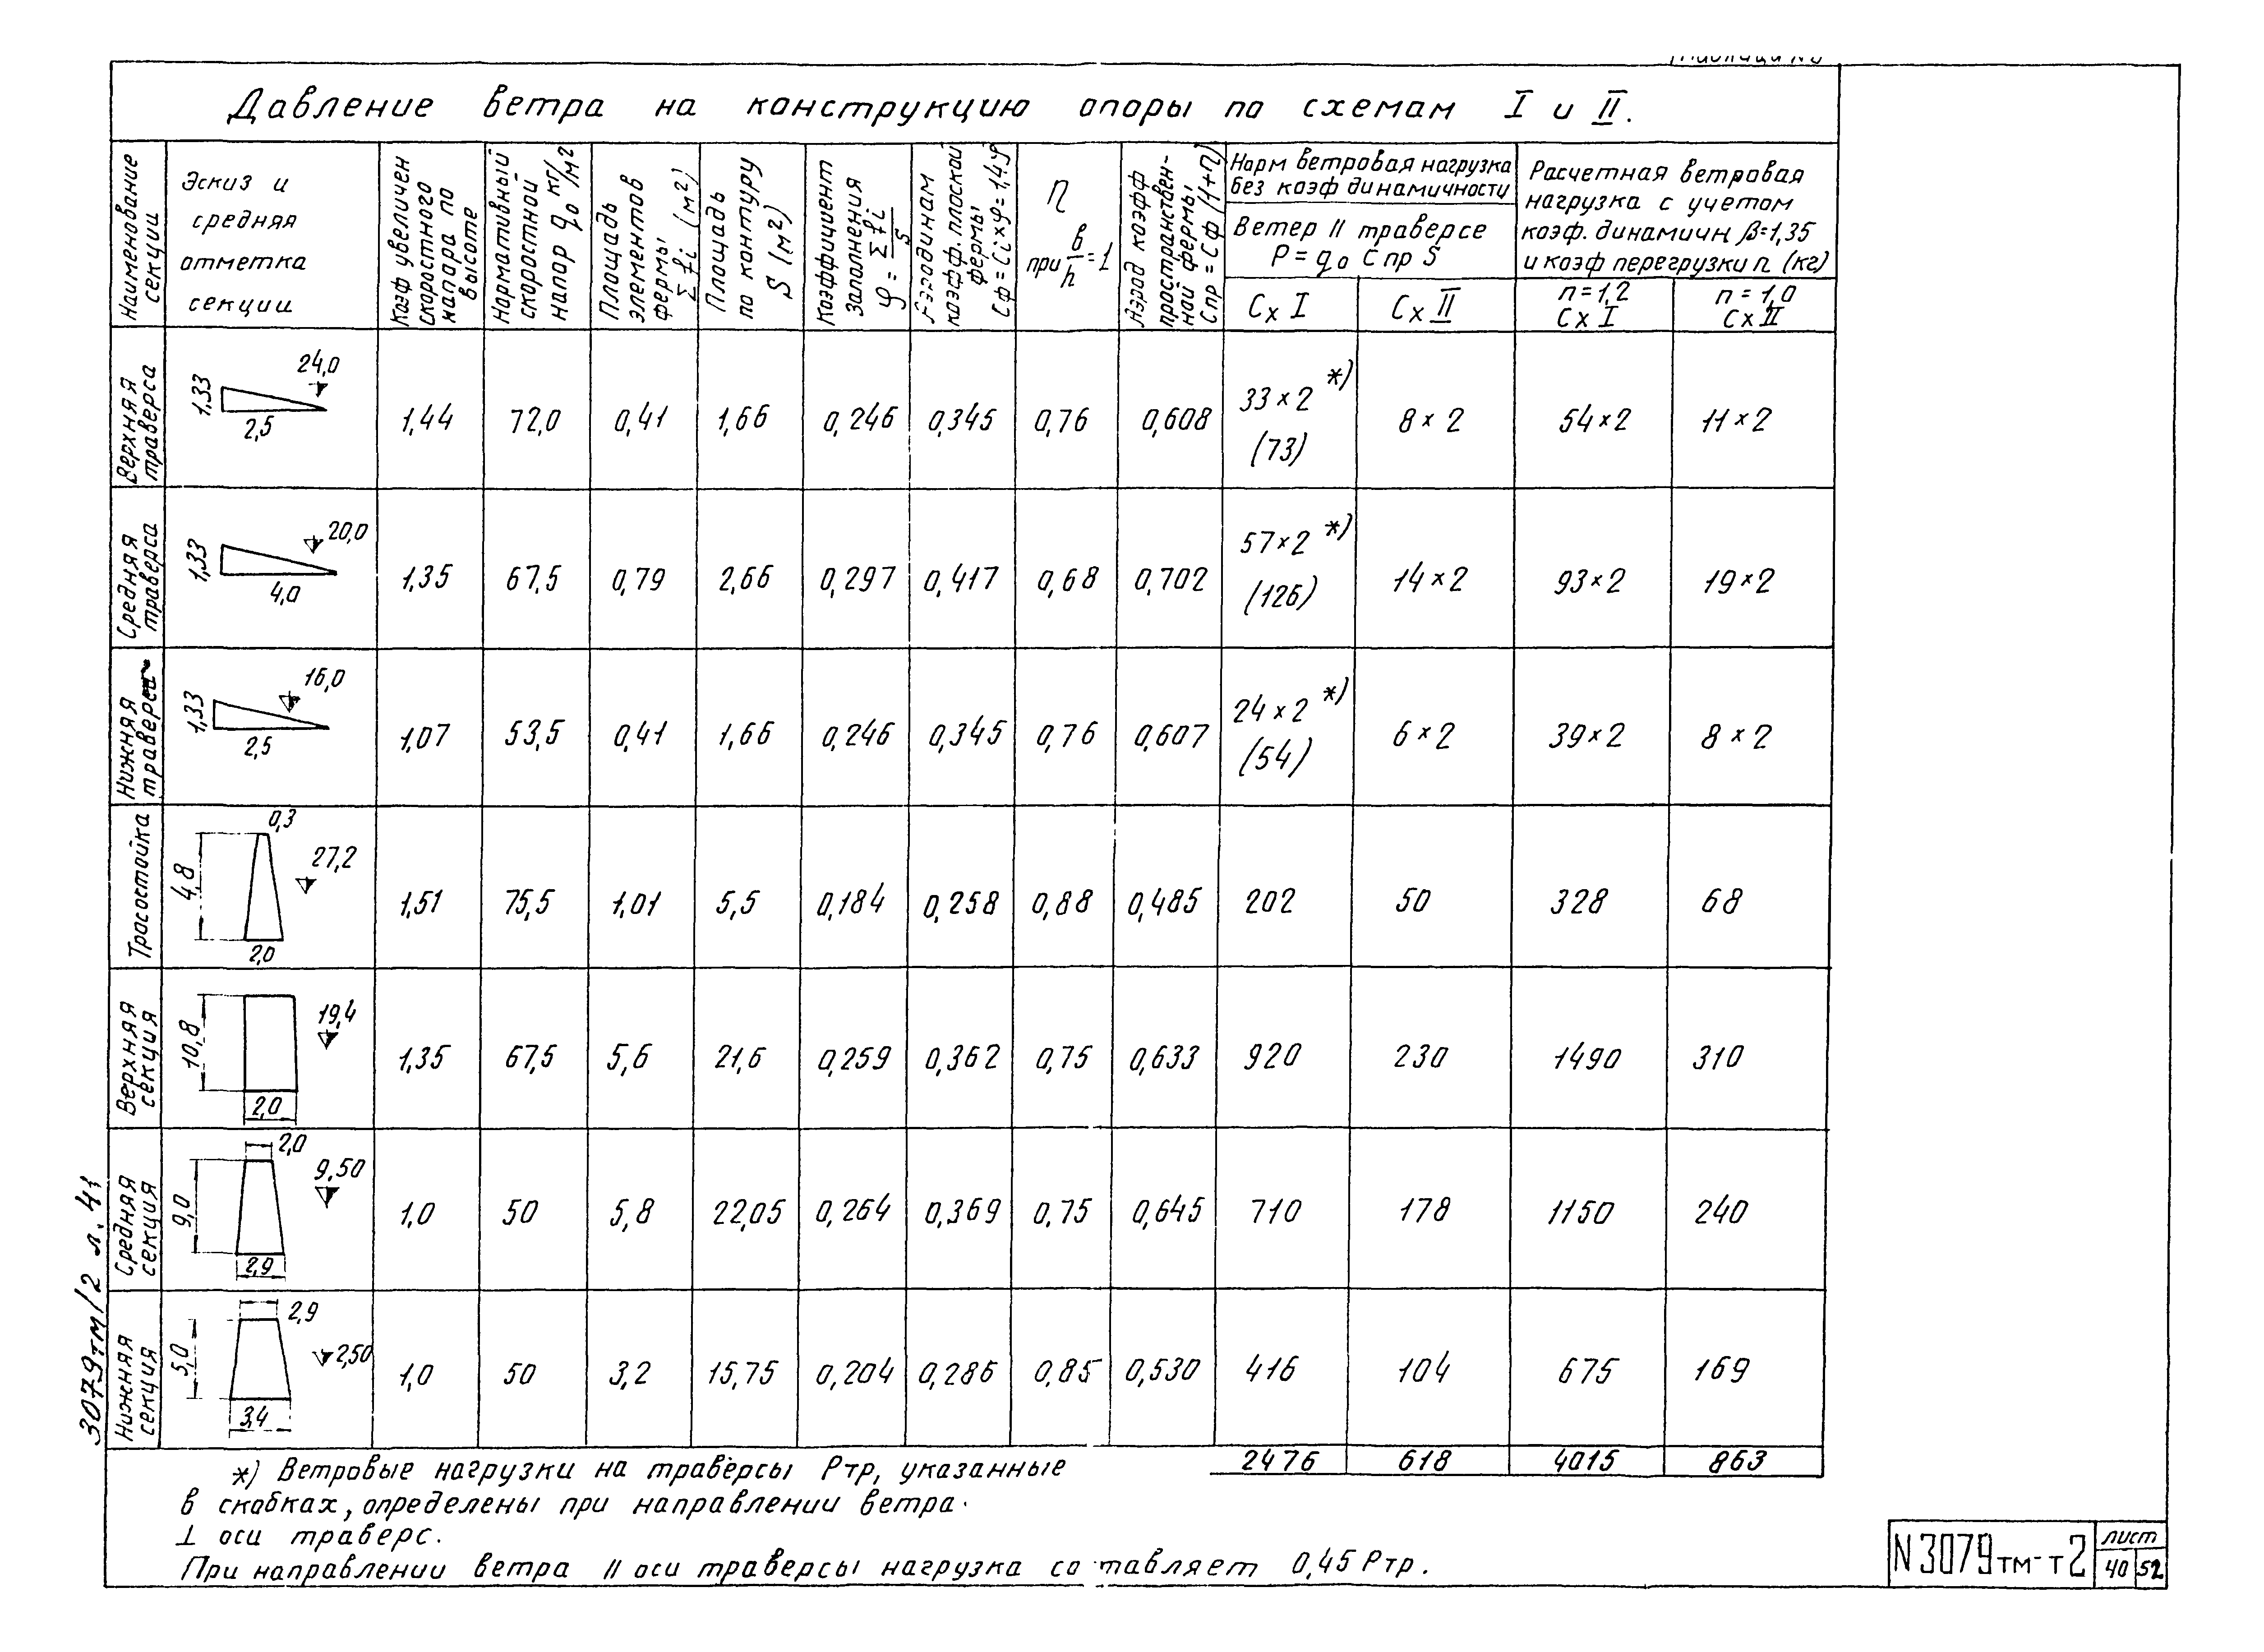 Давление ветра на конструкцию опоры по схемам I и II.
Наименование секции
Эскиз и средняя отметка секции
Коэф увеличен скоростного напора по высоте
Нормативный скоростной напор q₀ кг/м²
Площадь элементов фермы Σfi (м²)
Площадь по контуру S (м²)
Коэффициент заполнения φ = Σfi/S
Аэродинам коэфф. плоской фермы Сф = Ci×φ = 1,4φ
η при в/h = 1
Аэрод коэфф пространственной фермы Спр = Сф (1+η)
Норм ветровая нагрузка без коэф динамичности
Ветер II траверсе
P = q₀ Cпр S
Cх I
Cх II
Расчетная ветровая нагрузка с учетом коэф. динамичн β=1,35 и коэф перегрузки n (кг)
n=1,2 Cх I
n=1,0 Cх II
Верхняя траверса
24,0
1,33
2,5
1,44 72,0 0,41 1,66 0,246 0,345 0,76 0,608 33×2 *) (73) 8×2 54×2 11×2
Средняя траверса
20,0
1,33
4,0
1,35 67,5 0,79 2,66 0,297 0,417 0,68 0,702 57×2 *) (126) 14×2 93×2 19×2
Нижняя траверса
16,0
1,33
2,5
1,07 53,5 0,41 1,66 0,246 0,345 0,76 0,607 24×2 *) (54) 6×2 39×2 8×2
Тросостойка
0,3
4,8
27,2
2,0
1,51 75,5 1,01 5,5 0,184 0,258 0,88 0,485 202 50 328 68
Верхняя секция
10,8
19,4
2,0
1,35 67,5 5,6 21,6 0,259 0,362 0,75 0,633 920 230 1490 310
Средняя секция
2,0
9,0
9,50
2,9
1,0 50 5,8 22,05 0,264 0,369 0,75 0,645 710 178 1150 240
Нижняя секция
2,9
5,0
2,50
3,4
1,0 50 3,2 15,75 0,204 0,286 0,85 0,530 416 104 675 169
2476 618 4015 863
*) Ветровые нагрузки на траверсы Ртр, указанные
в скобках, определены при направлении ветра
⊥ оси траверс.
При направлении ветра II оси траверсы нагрузка составляет 0,45 Ртр.
3079тм/2 л. 41
N3079тм-т2
лист
40 52